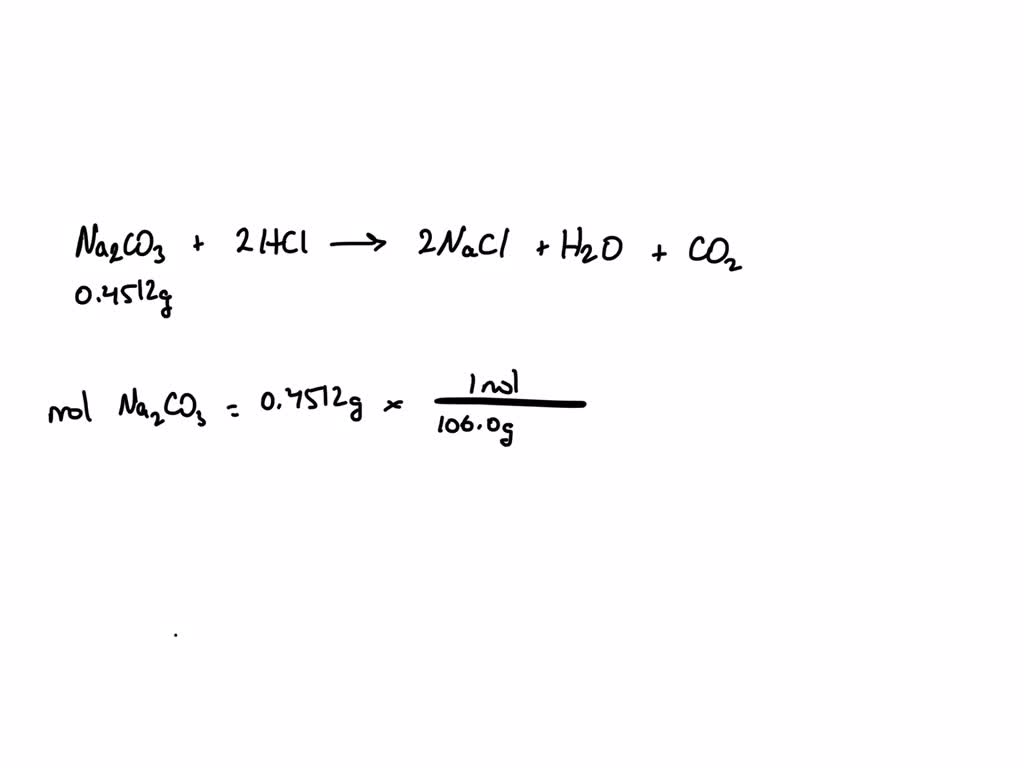 Na2CO3 + 2HCl → 2NaCl + H2O + CO2
0.4512g
mol Na2CO3 = 0.4512g × 1 mol
106.0g